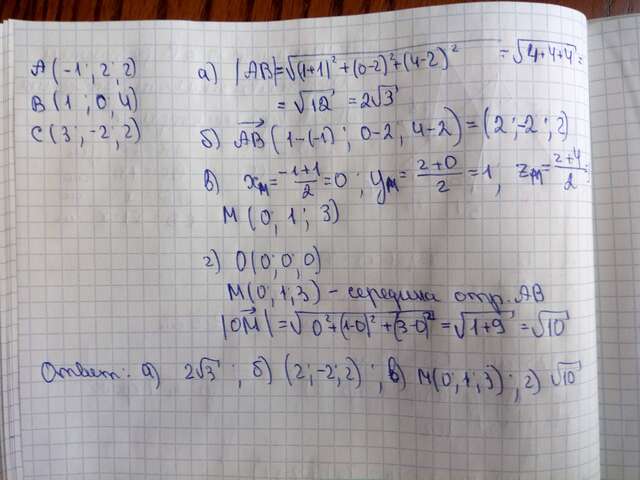 A (-1; 2; 2)
B (1; 0; 4)
C (3; -2; 2)
а) |AB|=√(1+1)²+(0-2)²+(4-2)² = √4+4+4 =
= √12 = 2√3
б) AB (1-(-1); 0-2; 4-2) = (2; -2; 2)
в) xм = -1+1/2 = 0; yм = 2+0/2 = 1, zм = 2+4/2 =
M (0; 1; 3)
г) O(0; 0; 0)
M(0; 1; 3) - середина отр. AB
|OM| = √0²+(1-0)²+(3-0)² = √1+9 = √10
Ответ: а) 2√3; б) (2; -2; 2); в) M(0; 1; 3); г) √10